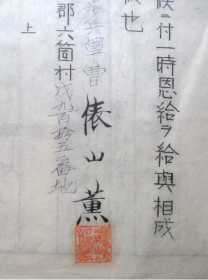 候ニ付一時恩給ヲ給與相成
候也
兵軍曹 俵山薫
郡六箇村戊九百拾五番地
上